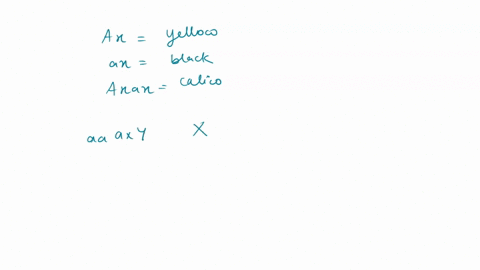 Ax = yelloco
ax = black
Axax = calico
aa axY X